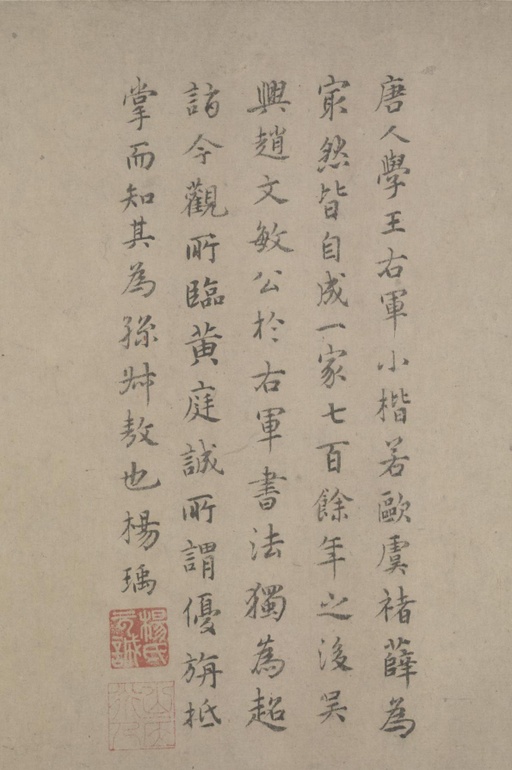 唐人學王右軍小楷若歐虞褚薛為
冣然皆自成一家七百餘年之後吳
興趙文敏公於右軍書法獨為超
詣今觀所臨黃庭誠所謂優旃抵
掌而知其為孫叔敖也楊瑀
楊氏元誠